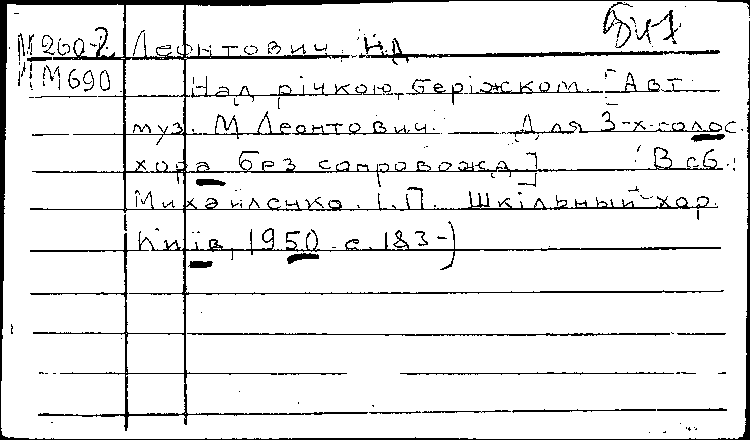 М 260-2 Леонтович, НД
М 690 Над річкою, беріжком. [Авт.
муз. М. Леонтович. Для 3-х голос.
хора без сопровожд.] (В сб.:
Михайленко. І.П. Шкільный хор.
Київ, 1950. с. 183-)